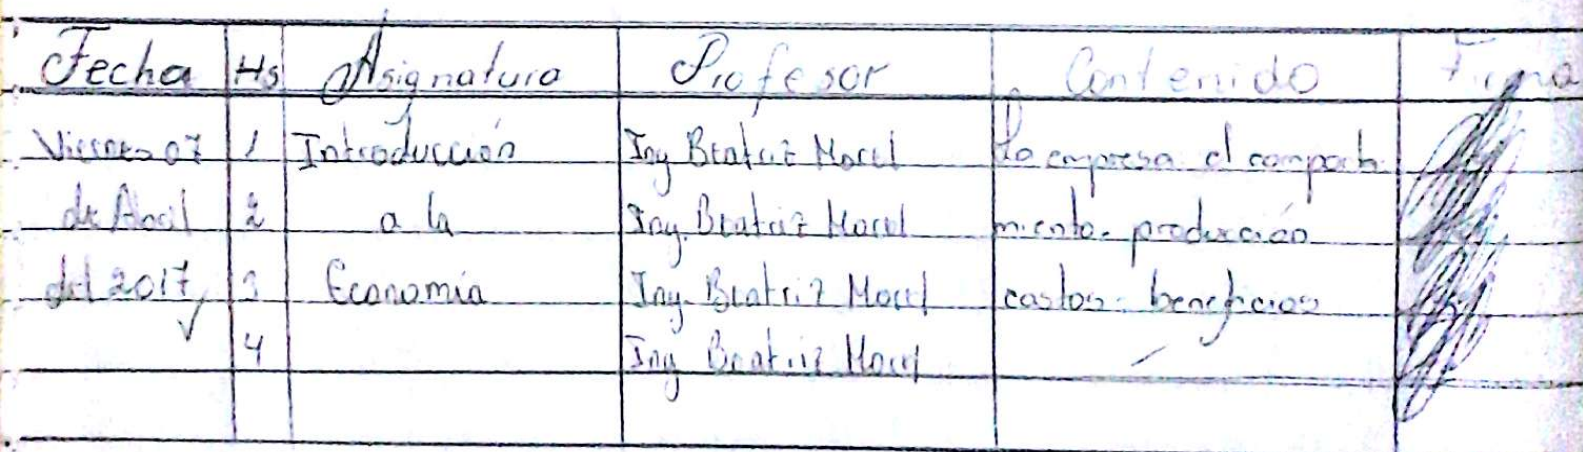 Fecha Hs Asignatura Profesor Contenido Firma
Viernes 07 1 Introducción Ing Beatriz Morel La empresa el comporta
de Abril 2 a la Ing. Beatriz Morel miento. producción
del 2017 3 Economía Ing. Beatriz Morel costos. beneficios
4 Ing Beatriz Morel